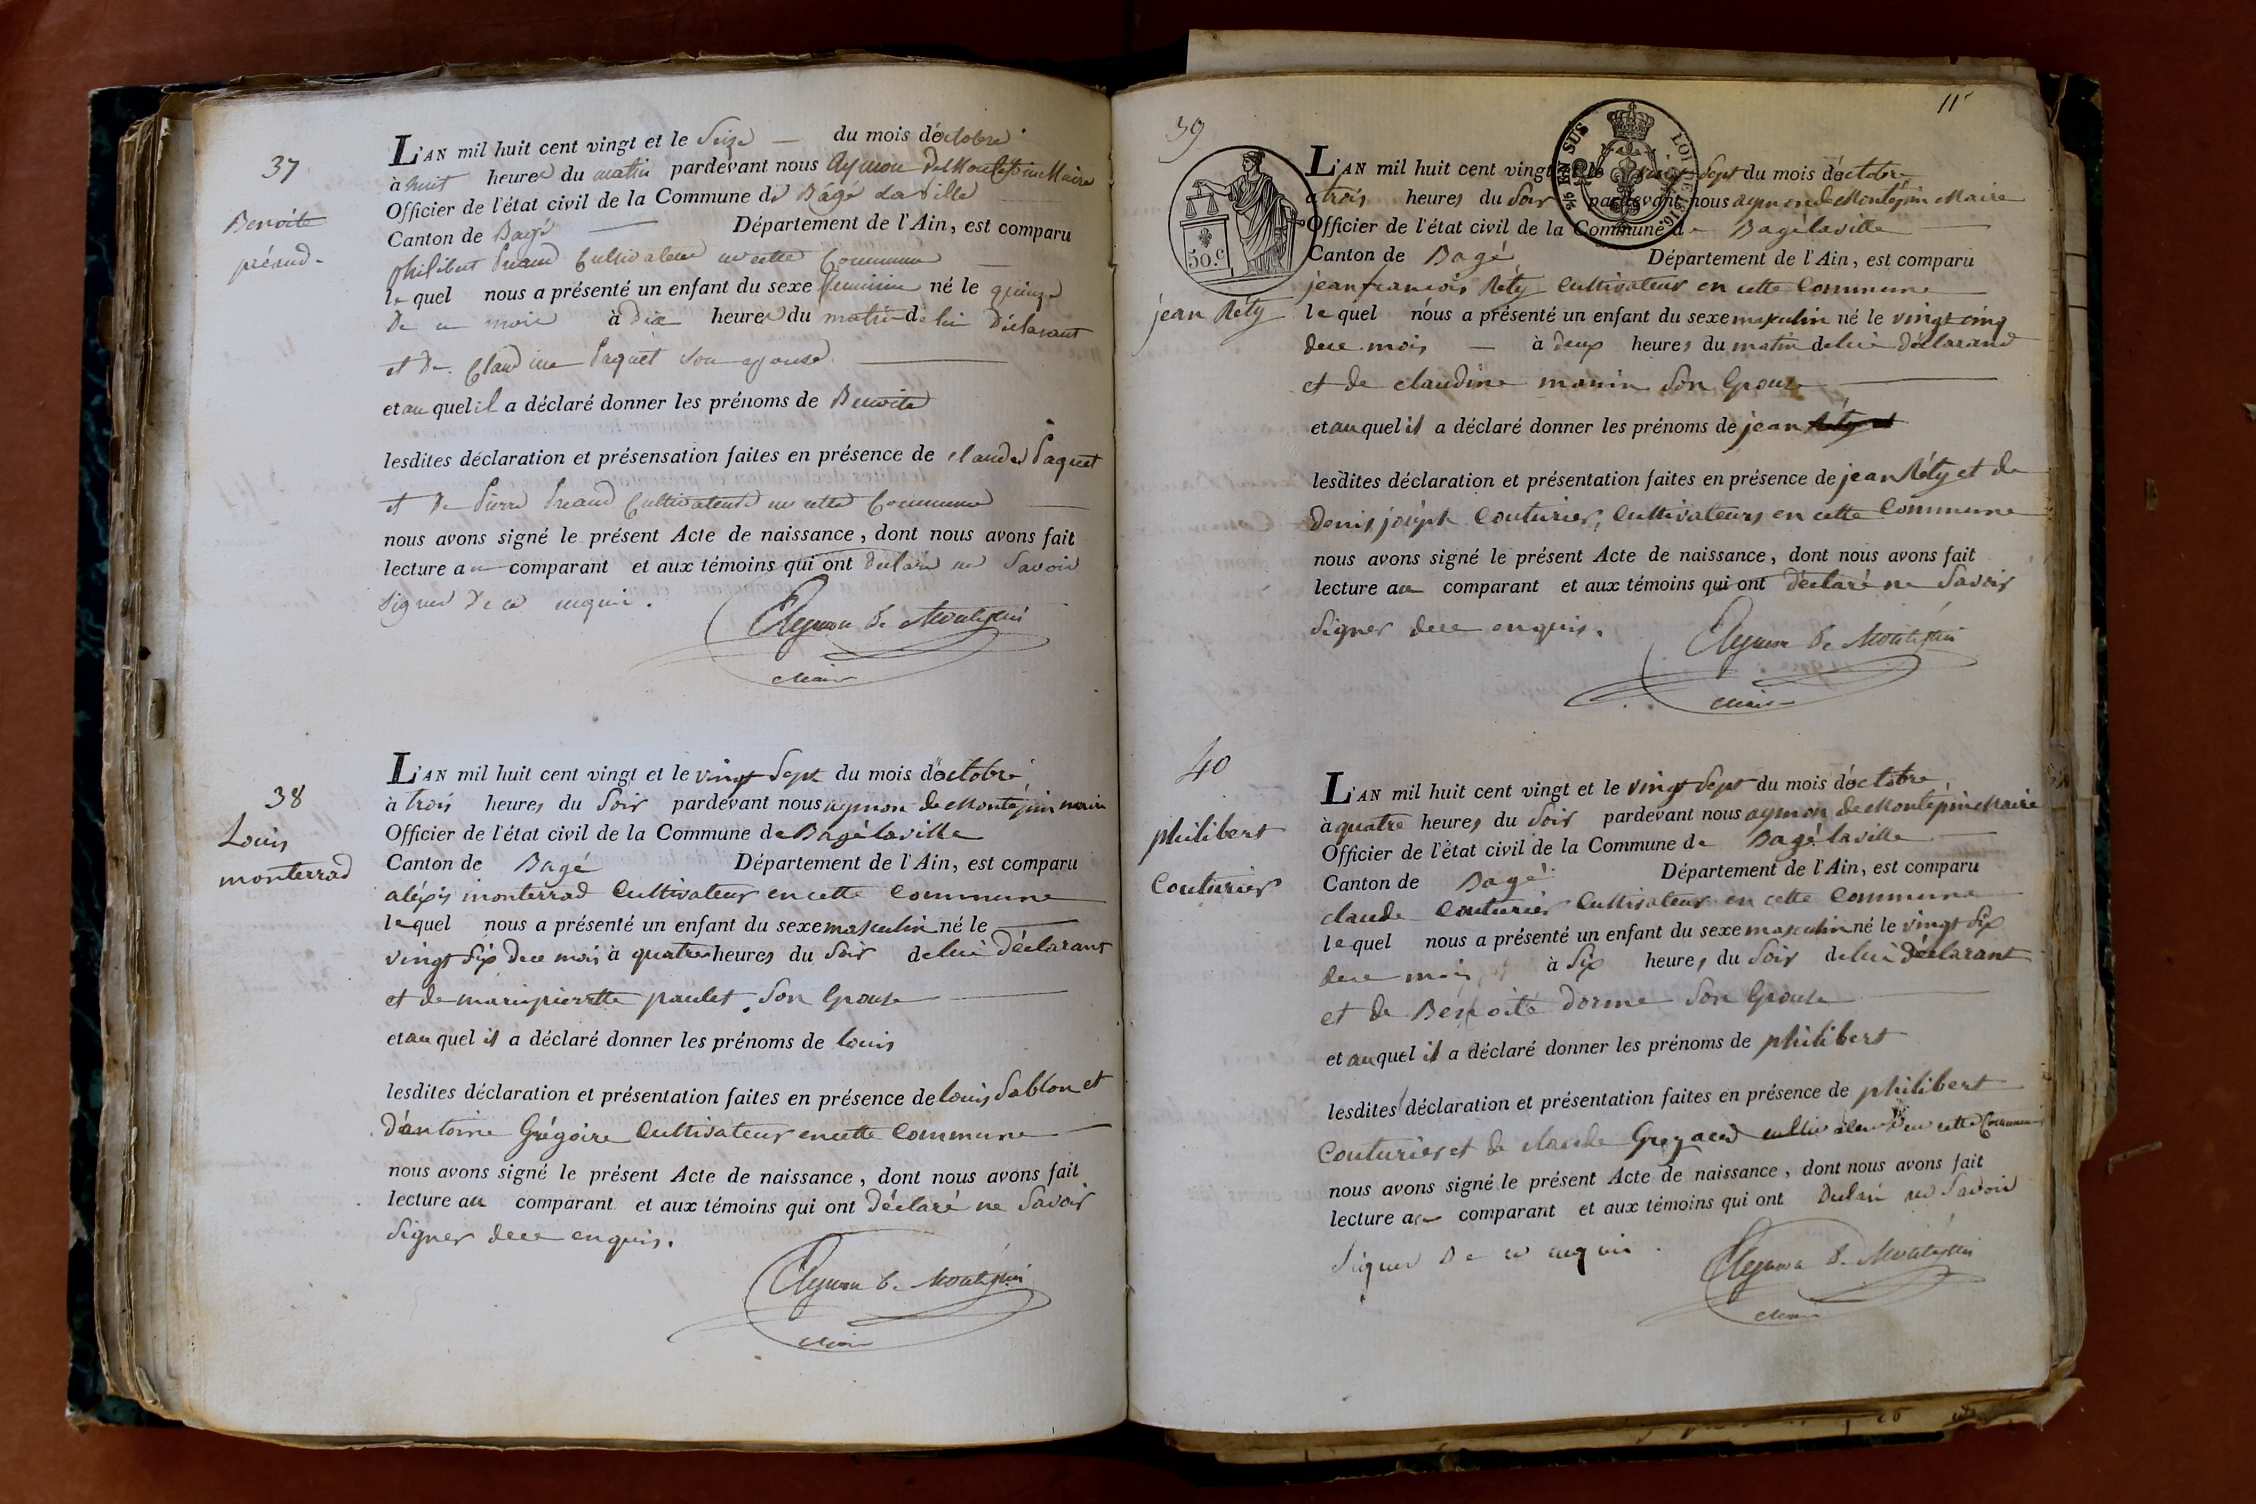 37
Benoite
préaud.
L'AN mil huit cent vingt et le Seize du mois d'octobre
à huit heures du matin pardevant nous Aymon De Montépin Maire
Officier de l'état civil de la Commune de Bagé La Ville
Canton de Bagé Département de l'Ain, est comparu
philibert Préaud Cultivateur en cette Commune
lequel nous a présenté un enfant du sexe féminin né le quinze
De ce mois à Dix heures du matin de lui Déclarant
et De Claudine Paquet son epouse
et au quel il a déclaré donner les prénoms de Benoite
lesdites déclaration et présensation faites en présence de claude Paquet
et De Pierre Préaud Cultivateurs en cette Commune
nous avons signé le présent Acte de naissance, dont nous avons fait
lecture au comparant et aux témoins qui ont Déclaré ne Savoir
signer De ce enquis.
Aymon De Montépin
Maire
38
Louis
monterrad
L'AN mil huit cent vingt et le vingt Sept du mois d'octobre
à trois heures du Soir pardevant nous aymon de Montépin maire
Officier de l'état civil de la Commune de Bagé laville
Canton de Bagé Département de l'Ain, est comparu
aléxis monterrad Cultivateur en cette Commune
lequel nous a présenté un enfant du sexe masculin né le
vingt Six de ce mois à quatre heures du Soir de lui déclarant
et de marie pierrette paulet Son Epouse
et au quel il a déclaré donner les prénoms de louis
lesdites déclaration et présentation faites en présence de louis Sablon et
d'antoine Grégoire Cultivateur en cette Commune
nous avons signé le présent Acte de naissance, dont nous avons fait
lecture au comparant et aux témoins qui ont déclaré ne Savoir
Signer de ce enquis.
Aymon De Montépin
Maire
11
39
50.c
% EN SUS LOI DE 1816
jean Réty
L'AN mil huit cent vingt et le vingt Sept du mois d'octobre
à trois heures du Soir pardevant nous aymon de Montépin Maire
Officier de l'état civil de la Commune de Bagé laville
Canton de Bagé Département de l'Ain, est comparu
jean francois Réty Cultivateur en cette Commune
lequel nous a présenté un enfant du sexe masculin né le vingt cinq
de ce mois à deux heures du matin de lui déclarand
et de claudine monin Son Epouse
et au quel il a déclaré donner les prénoms de jean
lesdites déclaration et présentation faites en présence de jean Réty et de
denis joseph Couturier, Cultivateurs en cette Commune
nous avons signé le présent Acte de naissance, dont nous avons fait
lecture au comparant et aux témoins qui ont déclaré ne Savoir
Signer de ce enquis.
Aymon De Montépin
Maire
40
philibert
Couturier
L'AN mil huit cent vingt et le vingt Sept du mois d'octobre
à quatre heures du Soir pardevant nous aymon de Montépin Maire
Officier de l'état civil de la Commune de Bagé laville
Canton de Bagé Département de l'Ain, est comparu
claude Couturier Cultivateur en cette Commune
lequel nous a présenté un enfant du sexe masculin né le vingt Six
de ce mois à Six heures du Soir de lui déclarant
et de Benoite dorme Son Epouse
et au quel il a déclaré donner les prénoms de philibert
lesdites déclaration et présentation faites en présence de philibert
Couturier et de claude cultivateurs en cette Commune
nous avons signé le présent Acte de naissance, dont nous avons fait
lecture au comparant et aux témoins qui ont Déclaré ne Savoir
Signer De ce enquis.
Aymon De Montépin
Maire